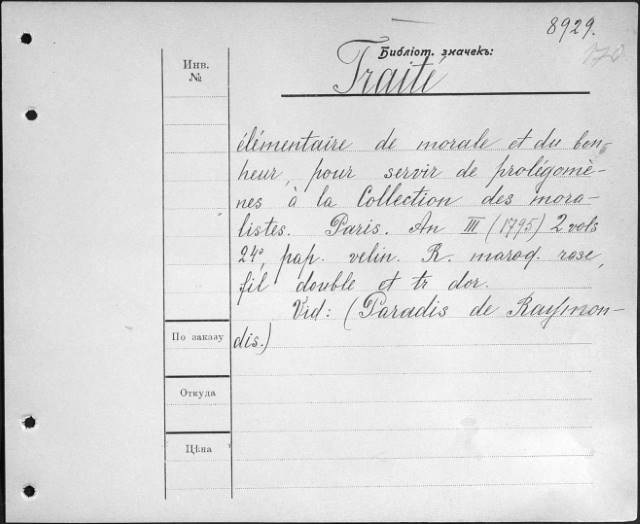 8929.
170
Библіот. значекъ:
Инв.
№
Traité
élémentaire de morale et du bon-
heur, pour servir de prolégomè-
nes à la Collection des mora-
listes. Paris. An III (1795) 2 vols
24°, pap. velin. R. maroq. rose,
fil double et tr dor.
Vid: (Paradis de Raymon-
dis.)
По заказу
Откуда
Цѣна